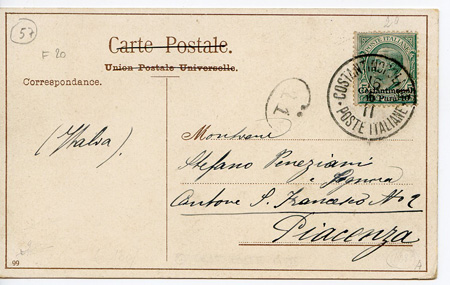 57
F 20
Carte Postale.
Union Postale Universelle.
Correspondance.
POSTE ITALIANE
Costantinopoli
10 Parà 10
COSTANTINOPOLI
11
POSTE ITALIANE
21
(Italia).
Stefano Veneziani
e Signora
Cantone S. Francesco No 2
Piacenza
99
A